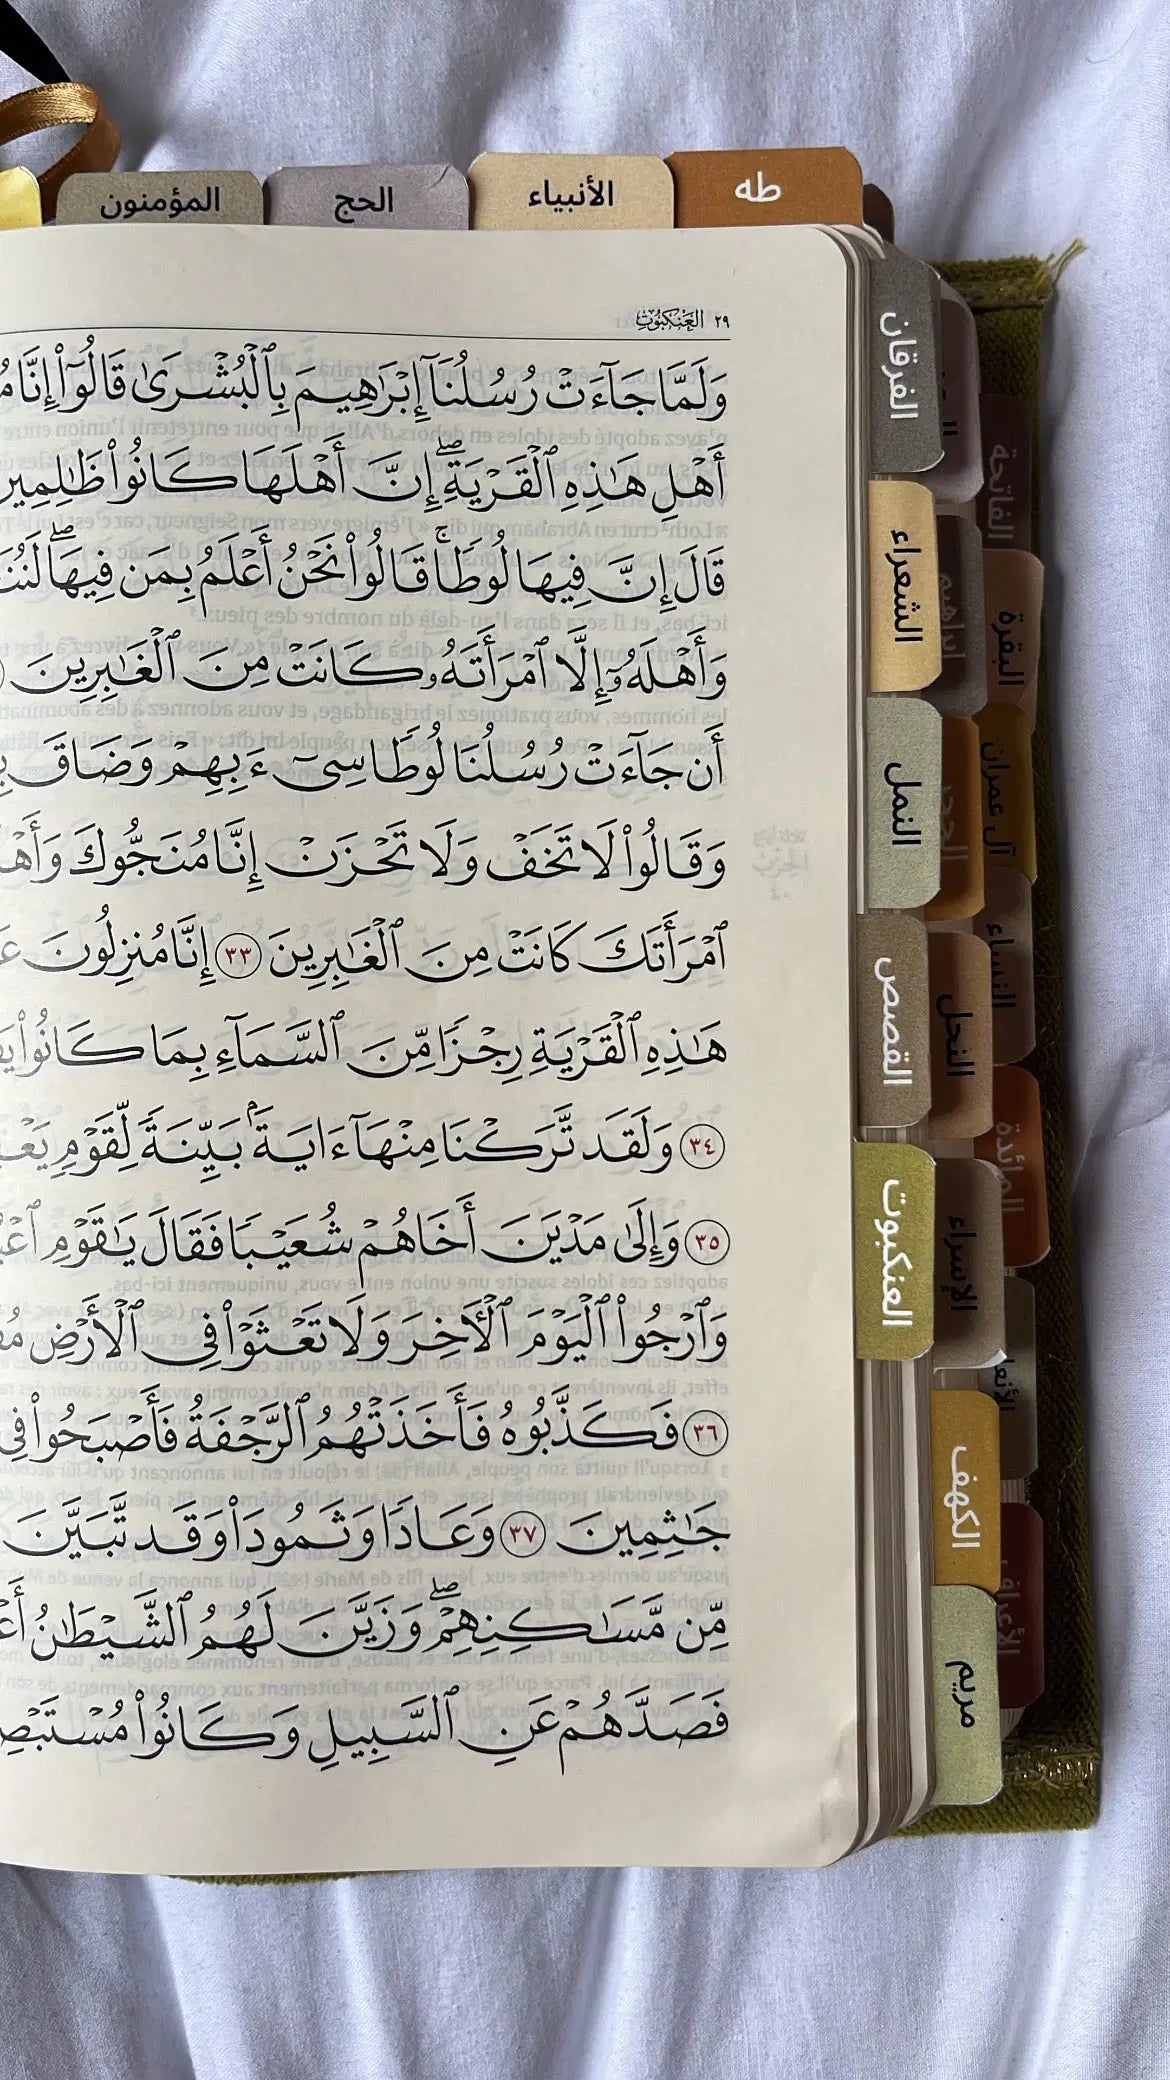 طه
الأنبياء
الحج
المؤمنون
٢٩ العَنكَبُوت
وَلَمَّا جَآءَتْ رُسُلُنَآ إِبْرَٰهِيمَ بِٱلْبُشْرَىٰ قَالُوٓا۟ إِنَّا
أَهْلِ هَـٰذِهِ ٱلْقَرْيَةِ ۖ إِنَّ أَهْلَهَا كَانُوا۟ ظَـٰلِمِينَ
قَالَ إِنَّ فِيهَا لُوطًا ۚ قَالُوا۟ نَحْنُ أَعْلَمُ بِمَن فِيهَا ۖ
وَأَهْلَهُۥٓ إِلَّا ٱمْرَأَتَهُۥ كَانَتْ مِنَ ٱلْغَـٰبِرِينَ
أَن جَآءَتْ رُسُلُنَا لُوطًا سِىٓءَ بِهِمْ وَضَاقَ
وَقَالُوا۟ لَا تَخَفْ وَلَا تَحْزَنْ إِنَّا مُنَجُّوكَ
ٱمْرَأَتَكَ كَانَتْ مِنَ ٱلْغَـٰبِرِينَ ٣٣ إِنَّا مُنزِلُونَ
هَـٰذِهِ ٱلْقَرْيَةِ رِجْزًا مِّنَ ٱلسَّمَآءِ بِمَا كَانُوا۟
٣٤ وَلَقَد تَّرَكْنَا مِنْهَآ ءَايَةًۢ بَيِّنَةً لِّقَوْمٍ
٣٥ وَإِلَىٰ مَدْيَنَ أَخَاهُمْ شُعَيْبًا فَقَالَ يَـٰقَوْمِ
وَٱرْجُوا۟ ٱلْيَوْمَ ٱلْـَٔاخِرَ وَلَا تَعْثَوْا۟ فِى ٱلْأَرْضِ
٣٦ فَكَذَّبُوهُ فَأَخَذَتْهُمُ ٱلرَّجْفَةُ فَأَصْبَحُوا۟ فِى
جَـٰثِمِينَ ٣٧ وَعَادًا وَثَمُودَا۟ وَقَد تَّبَيَّنَ
مِّن مَّسَـٰكِنِهِمْ ۖ وَزَيَّنَ لَهُمُ ٱلشَّيْطَـٰنُ
فَصَدَّهُمْ عَنِ ٱلسَّبِيلِ وَكَانُوا۟
الفرقان
الشعراء
النمل
القصص
العنكبوت
إبراهيم
الحجر
النحل
الإسراء
الكهف
مريم
الفاتحة
البقرة
آل عمران
النساء
المائدة
الأنعام
الأعراف